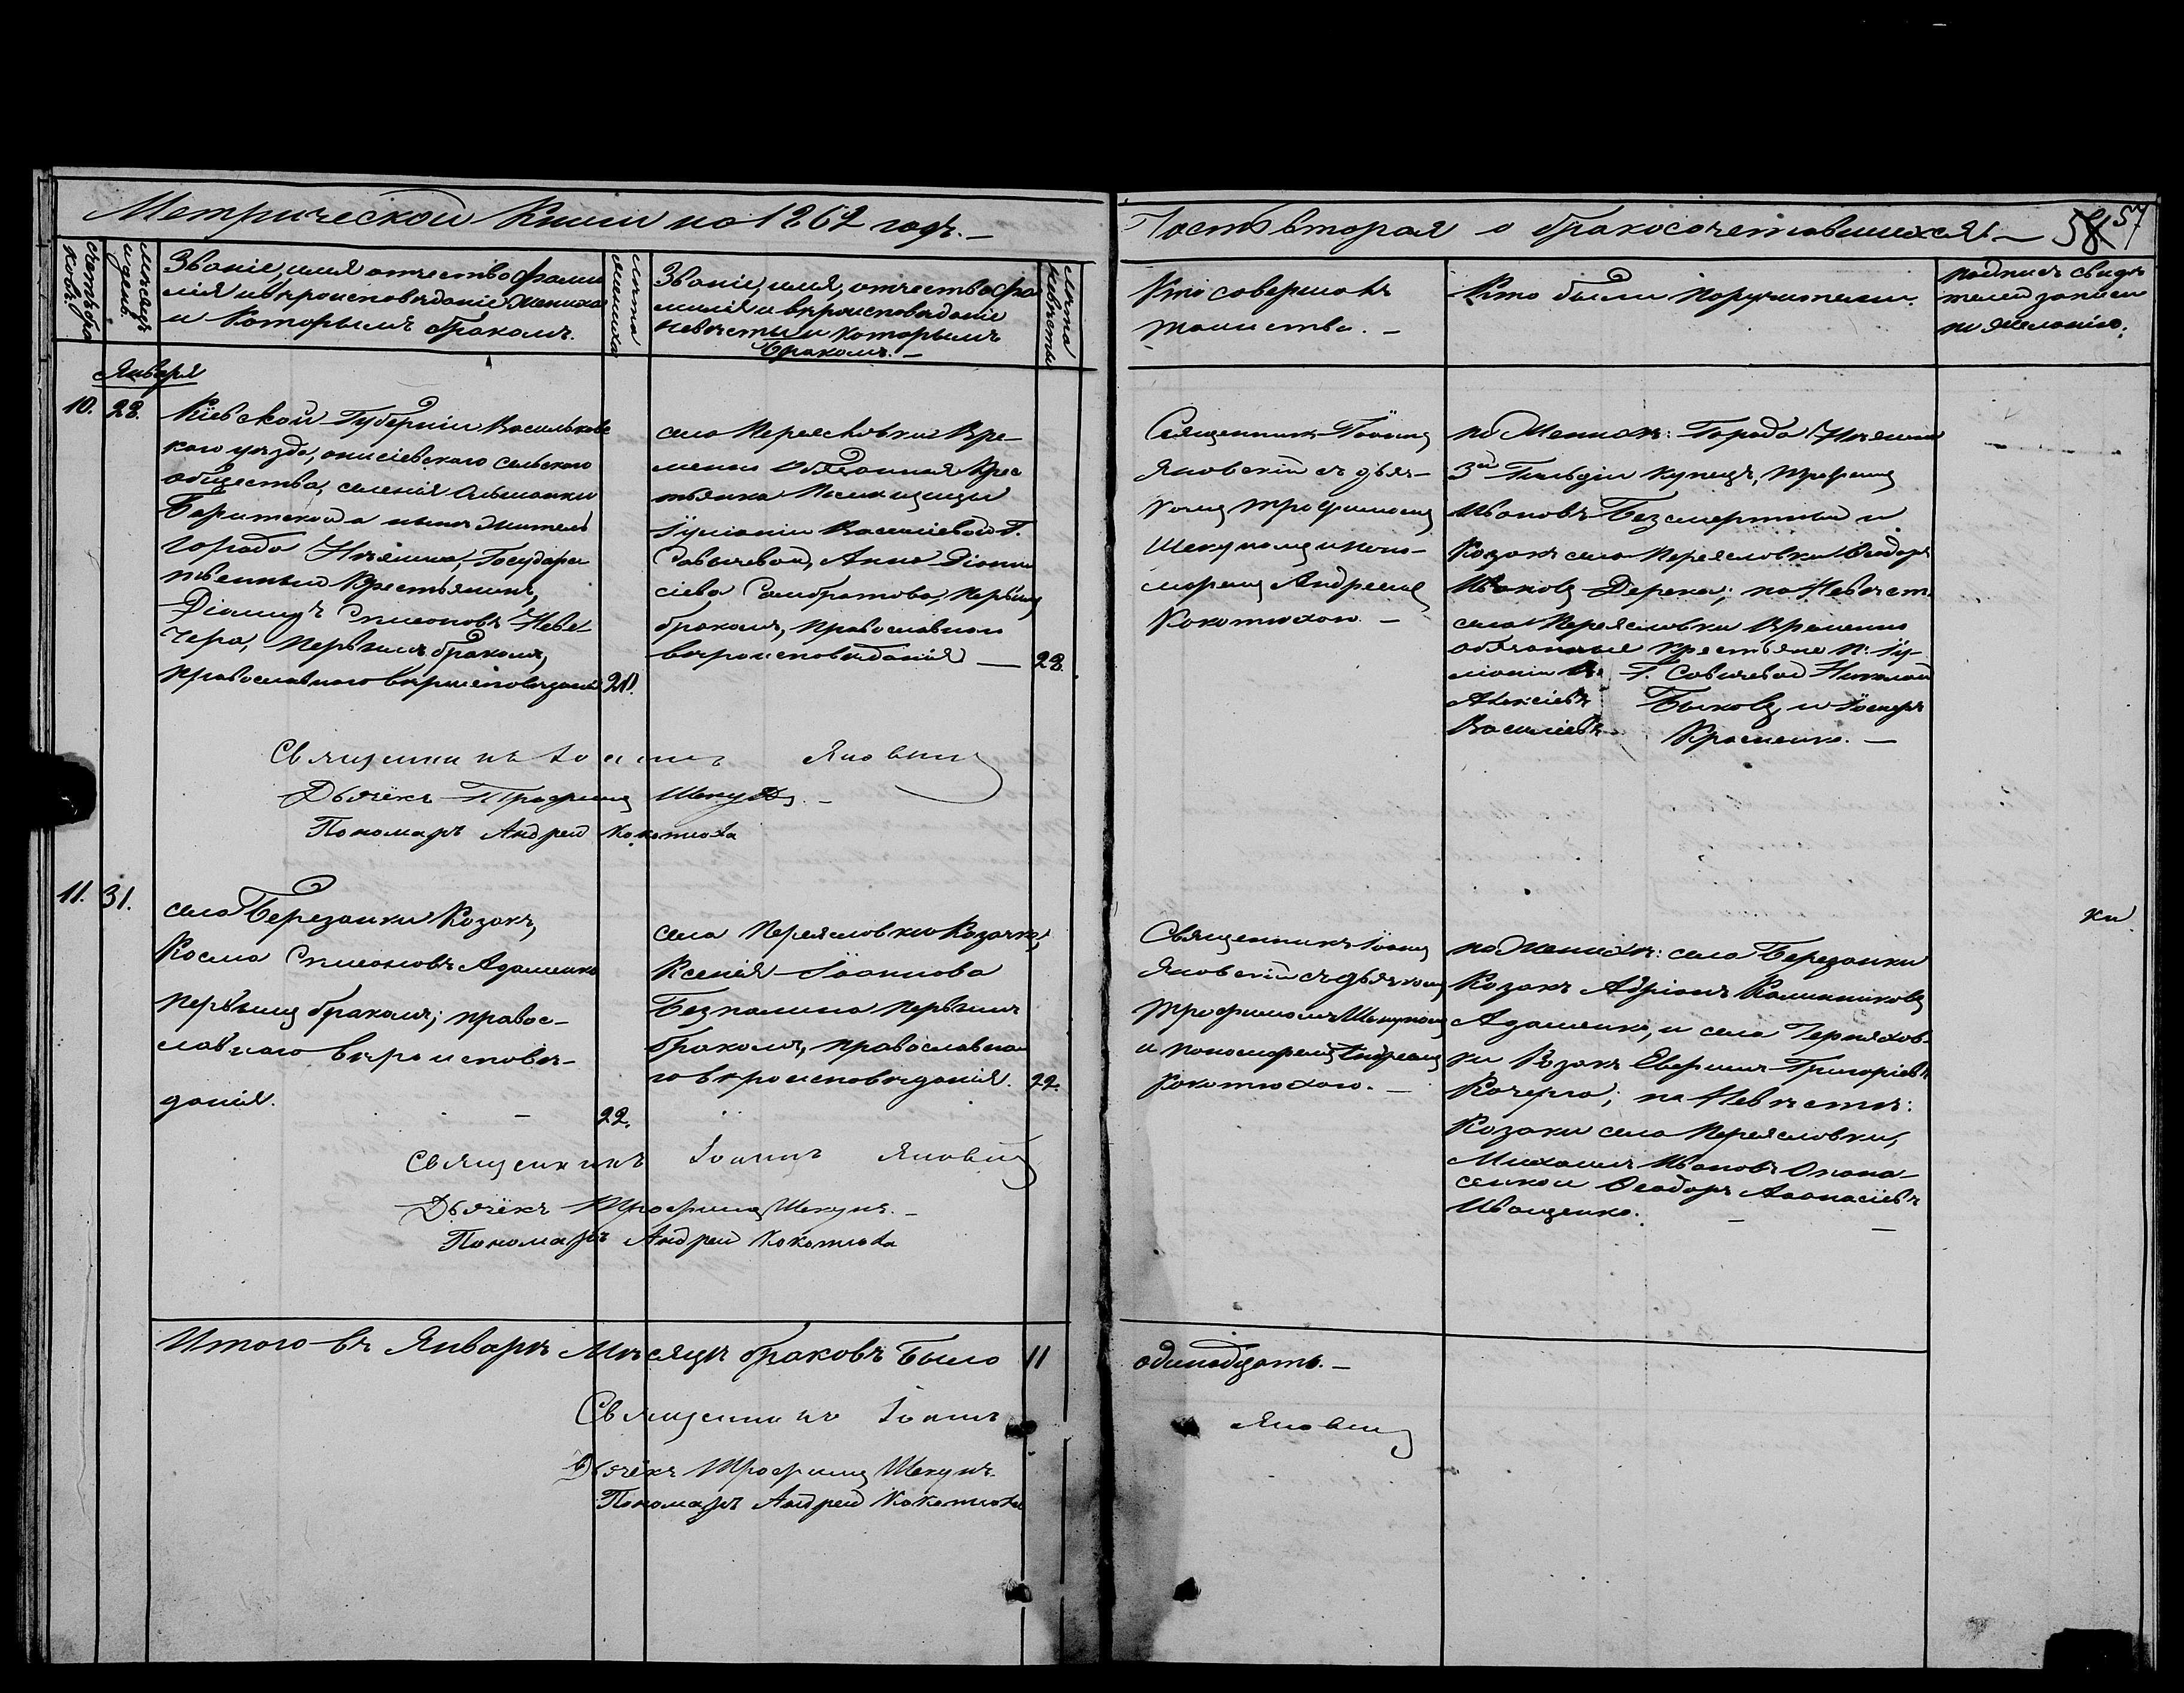 Метрической Книги на 1862 годъ.—
Часть вторая о бракосочетавшихся.— 58 57
счетъ браковъ.
мѣсяцъ и день.
Званіе, имя отчество фами
лія и вѣроисповѣданіе жениха
и которымъ бракомъ.
лѣта жениха
Званіе, имя, отчество фа
милія и вѣроисповѣданіе
невѣсты и которымъ
бракомъ.—
лѣта невѣсты
Кто совершалъ
таинство.—
Кто были поручители.
подпись свидѣ
телей записи
по желанію.
Января
10. 28.
Кіевской Губерніи Васильковс
каго уѣзда, сельскаго
общества, селенія Ольшанки
а нынѣ житель
города Нѣжина, Государс
твенный Крестьянинъ,
Симеоновъ Неве-
чера, первымъ бракомъ,
православнаго вѣроисповѣданія 21.
села Переяловки Вре-
менно Обязанная Крес
тьянка Помѣщицы
Іуліаніи Васильевой Г.
Савичевой, Анна Діони
сіева Самбратова, первымъ
бракомъ, православнаго
вѣроисповѣданія — 22.
Священникъ Іоаннъ
Яновскій съ дьяч-
комъ Трофимомъ
Шекуномъ и поно-
маремъ Андреемъ
Кокотюхою.—
по Женихѣ: Города Нѣжина
3й Гильдіи купецъ, Трофимъ
Ивановъ Безсмертный и
Козакъ села Переясловки Феодоръ
Ивановъ Дерека; по Невѣстѣ
села Переясловки Временно
обязанные крестьяне П. Іу-
ліаніи В. Г. Савичевой Николай
Алексіевъ Быковъ и Іосифъ
Василіевъ Кращенко.—
Священникъ Іоаннъ Яновскій
Дьячёкъ Трофимъ Шекунъ.—
Пономарь Андрей Кокотюха
11. 31.
села Березанки Козакъ,
Косма Симеоновъ Адаменко
первымъ бракомъ; правос-
лавнаго вѣроисповѣ-
данія. — 22.
села Переясловки Козачка,
Ксенія Іоаннова
Безпалина первымъ
бракомъ, православна
го вѣроисповѣданія. 22.
Священникъ Іоаннъ
Яновскій съ дьячкомъ
Трофимомъ Шекуномъ
и пономаремъ Андреемъ
Кокотюхою.—
по Женихѣ: села Березанки
Козакъ Адріанъ Калинниковъ
Адаменко, и села Терехов-
ки Козакъ Евфимъ Григоріевъ
Кочерга; по Невѣстѣ:
Козаки села Переясловки,
Михаилъ Ивановъ Опана-
сенко и Феодоръ Афанасіевъ
Иващенко. — —
ки
Священникъ Іоаннъ Яновскій
Дьячёкъ Трофимъ Шекунъ.—
Пономарь Андрей Кокотюха
Итого въ Январѣ Мѣсяцѣ браковъ было 11 одинадцать.—
Священникъ Іоаннъ Яновскій
Дьячёкъ Трофимъ Шекунъ.
Пономарь Андрей Кокотюха